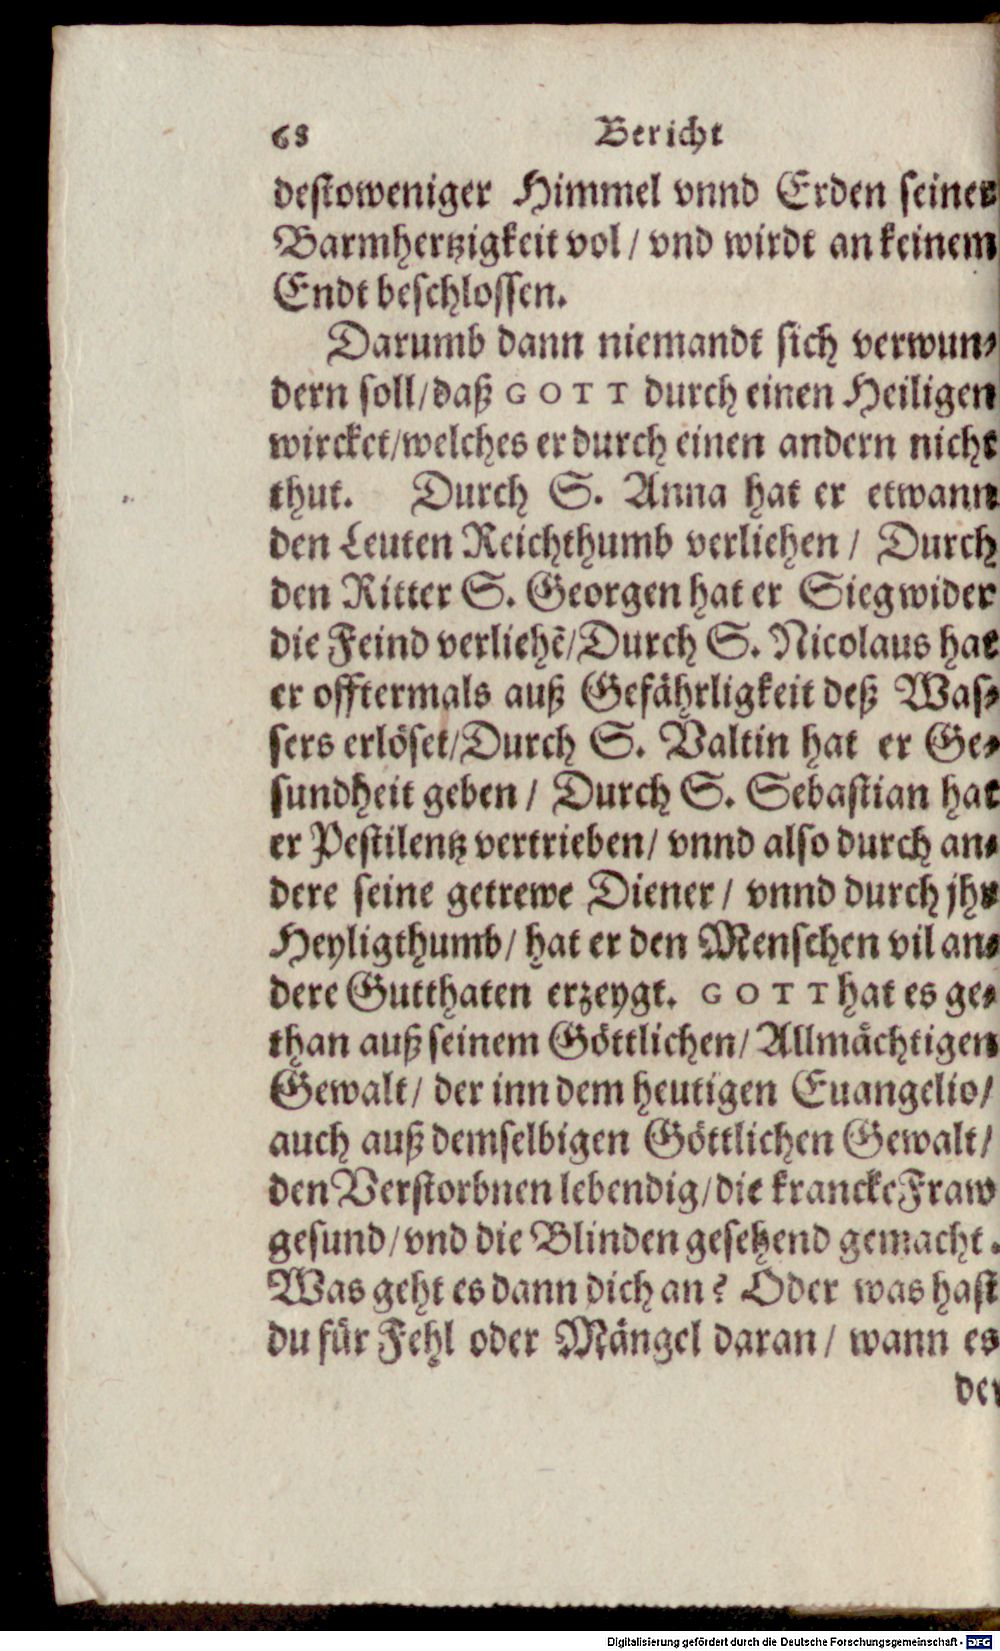 68 Bericht
destoweniger Himmel vnnd Erden seiner
Barmhertzigkeit vol / vnd wirdt an keinem
Endt beschlossen.
Darumb dann niemandt sich verwun⸗
dern soll/daß GOTT durch einen Heiligen
wircket/welches er durch einen andern nicht
thut. Durch S. Anna hat er etwann
den Leuten Reichthumb verliehen / Durch
den Ritter S. Georgen hat er Sieg wider
die Feind verliehẽ/Durch S. Nicolaus hat
er offtermals auß Gefährligkeit deß Was⸗
sers erlöset/Durch S. Valtin hat er Ge⸗
sundheit geben / Durch S. Sebastian hat
er Pestilentz vertrieben/ vnnd also durch an⸗
dere seine getrewe Diener / vnnd durch jhr
Heyligthumb/ hat er den Menschen vil an⸗
dere Gutthaten erzeygt. GOTT hat es ge⸗
than auß seinem Göttlichen/ Allmächtigen
Gewalt/ der inn dem heutigen Euangelio/
auch auß demselbigen Göttlichen Gewalt/
den Verstorbnen lebendig/die krancke Fraw
gesund/vnd die Blinden gesehend gemacht.
Was geht es dann dich an? Oder was hast
du für Fehl oder Mängel daran/ wann es
der
Digitalisierung gefördert durch die Deutsche Forschungsgemeinschaft - DFG